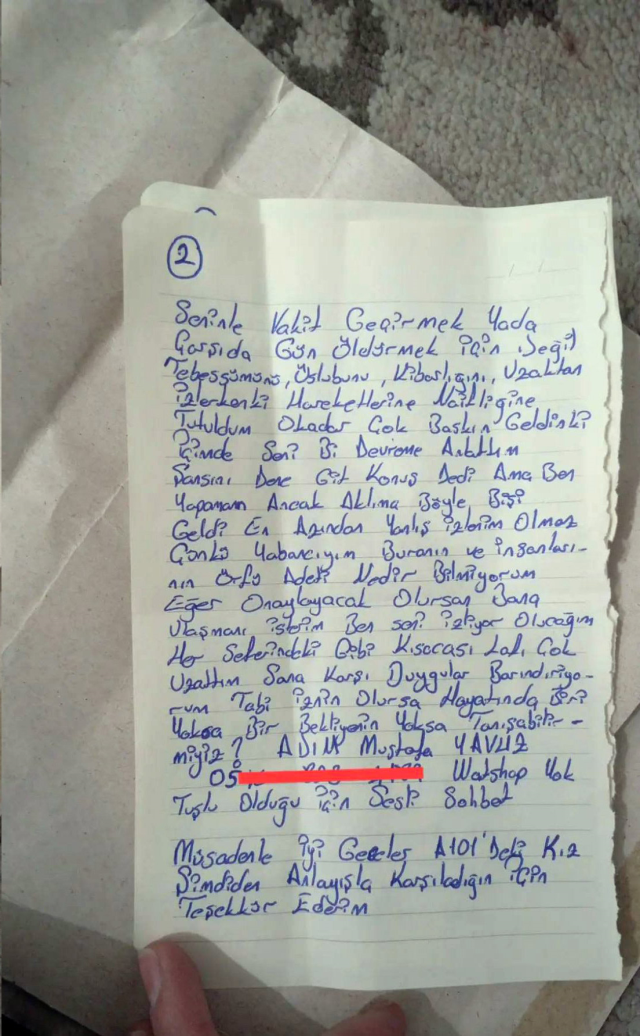 2
Seninle Vakit Geçirmek Yada
Çarşıda Gün Öldürmek için Değil
Tebessümünü, Üslubunu, Kibarlığını, Uzaktan
izlerkenki Hareketlerine Naifliğine
Tutuldum Okadar Çok Baskın Geldinki
içimde Seni Bi Devreme Anlattım
Şansını Dene Git Konuş Dedi Ama Ben
Yapamam Ancak Aklıma Böyle Bişi
Geldi En Azından Yanlış izlenim Olmaz
Çünkü Yabancıyım Buranın ve insanları-
nın Örfü Adeti Nedir Bilmiyorum
Eğer Onaylayacak Olursan Bana
Ulaşmanı isterim Ben seni izliyor Olucağım
Her Seferindeki Gibi Kısacası Lafı Çok
Uzattım Sana Karşı Duygular Barındırıyo-
rum Tabi iznin Olursa Hayatında Biri
Yoksa Bir Bekliyenin Yoksa Tanışabilir-
miyiz? ADIM Mustafa YAVUZ
05 Watshap Yok
Tuşlu Olduğu için Sesli Sohbet
Müsadenle iyi Geceler A101'Deki Kız
Şimdiden Anlayışla Karşıladığın için
Teşekkür Ederim